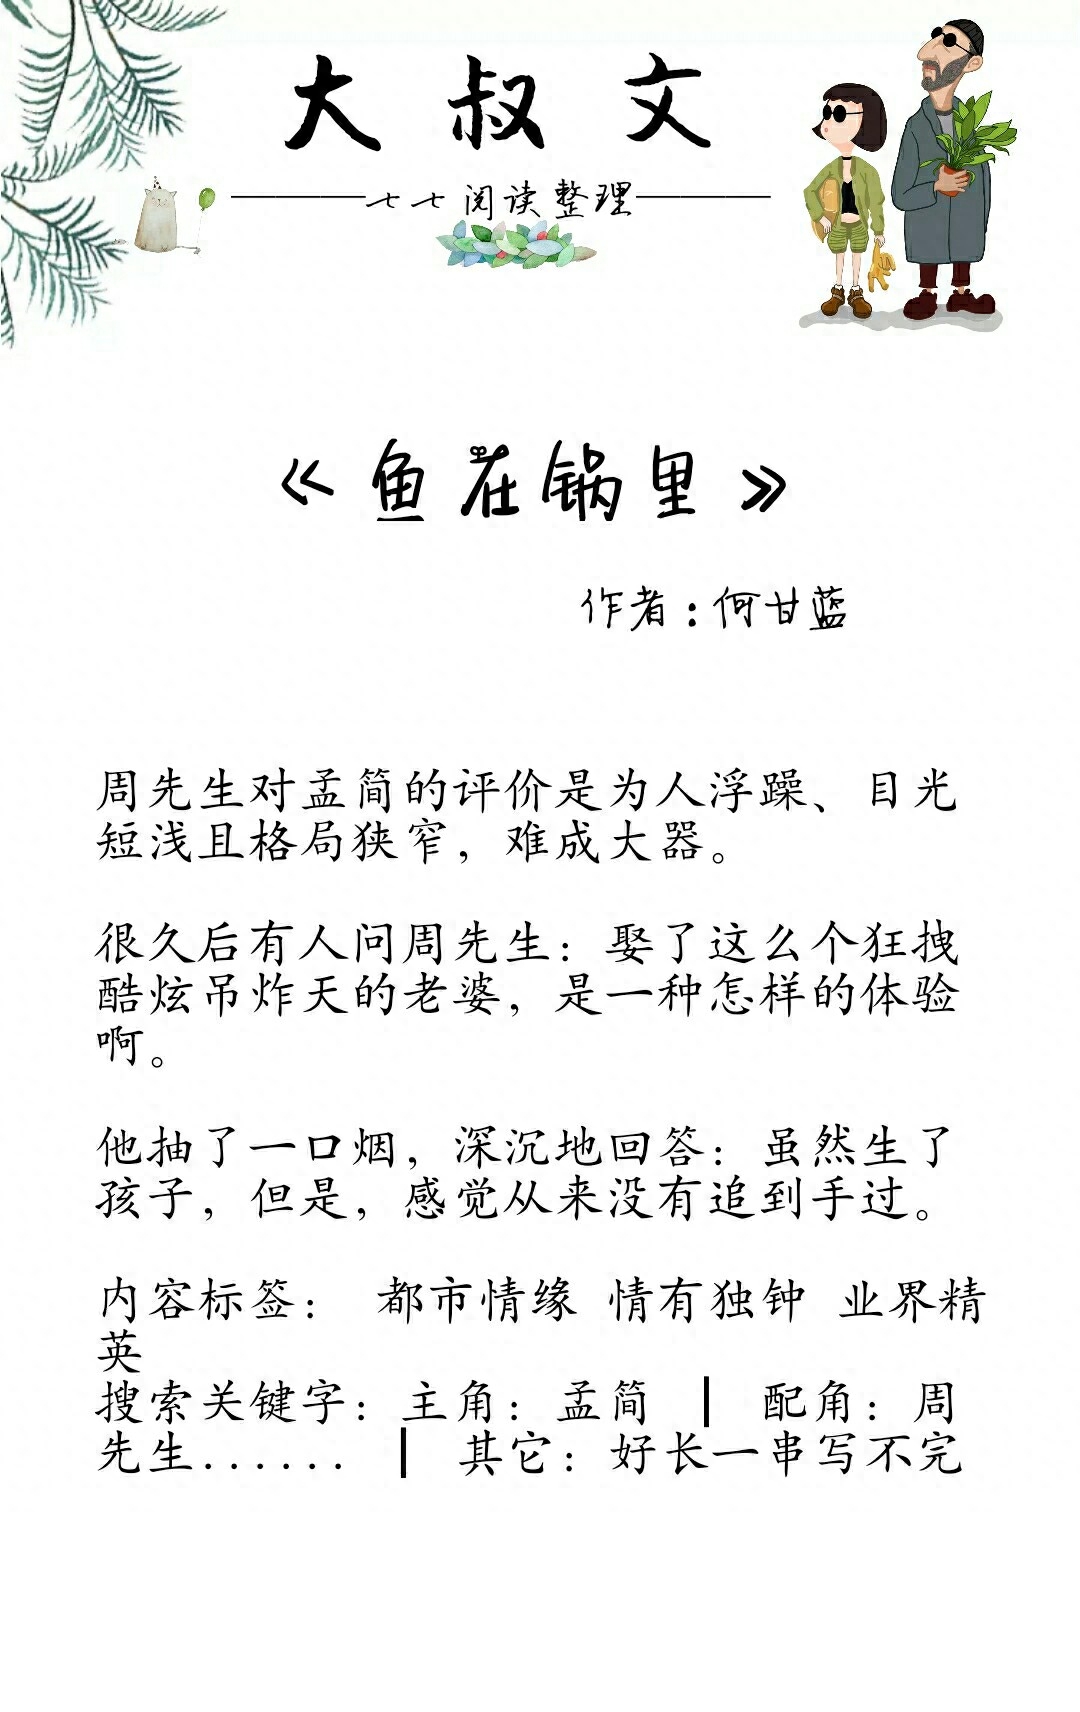 大叔文
七七阅读整理
《鱼在锅里》
作者：何甘蓝
周先生对孟简的评价是为人浮躁、目光
短浅且格局狭窄，难成大器。
很久后有人问周先生：娶了这么个狂拽
酷炫吊炸天的老婆，是一种怎样的体验
啊。
他抽了一口烟，深沉地回答：虽然生了
孩子，但是，感觉从来没有追到手过。
内容标签： 都市情缘 情有独钟 业界精
英
搜索关键字：主角：孟简 ┃ 配角：周
先生...... ┃ 其它：好长一串写不完